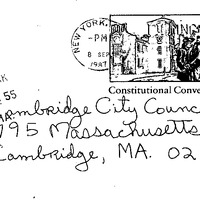 NEW YORK,
PM
8 SEP
1987
Constitutional Conve
K
55
Cambridge City Counc
795 Massachusetts
Cambridge, MA. 02